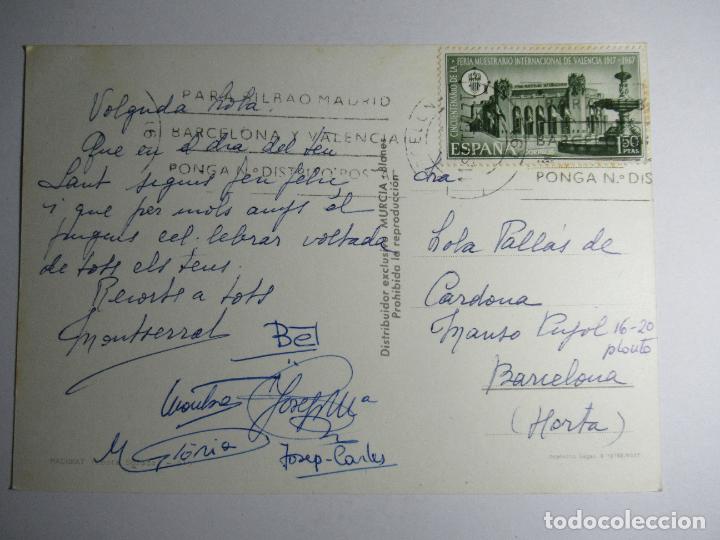 CINQUENTENARIO DE LA FERIA MUESTRARIO INTERNACIONAL DE VALENCIA 1917-1967
1'50
PTAS
ESPAÑA
PARA BILBAO MADRID
BARCELONA Y VALENCIA
PONGA N.º DISTRITO POS
PONGA N.º DIS
Volguda Lola:
Que en el dia del teu
Sant siguis ben feliç
i que per molts anys el
puguis cel·lebrar voltada
de tots els teus.
Records a tots
Montserrat
Bel
Montse Josep Mª
M Glòria Josep-Carles
Distribuidor exclusivo MURCIA-Blanes
Prohibida la reproducción
Sra.
Lola Pallás de
Cardona
Manso Pujol 16-20
Barcelona
(Horta)
todocoleccion